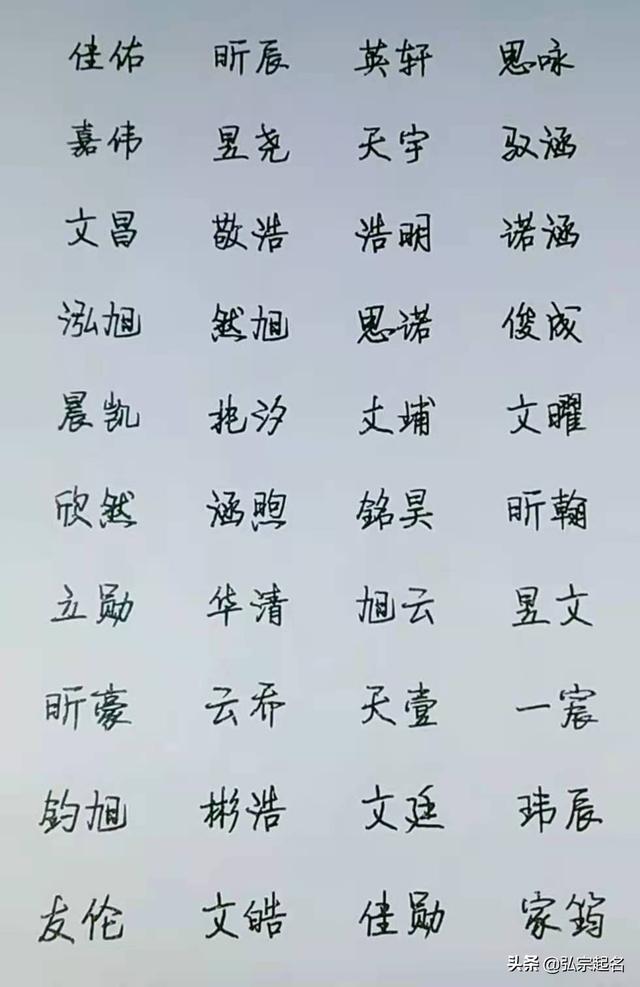 佳佑 昕辰 英轩 思咏
嘉伟 昱尧 天宇 驭涵
文昌 敬浩 浩明 诺涵
泓旭 然旭 思诺 俊成
晨凯 艳汐 文埔 文曜
欣然 涵煦 铭昊 昕翰
立勋 华清 旭云 昱文
昕豪 云乔 天壹 一宸
钧旭 彬浩 文廷 玮辰
友伦 文皓 佳勋 家筠
头条 @弘宗起名